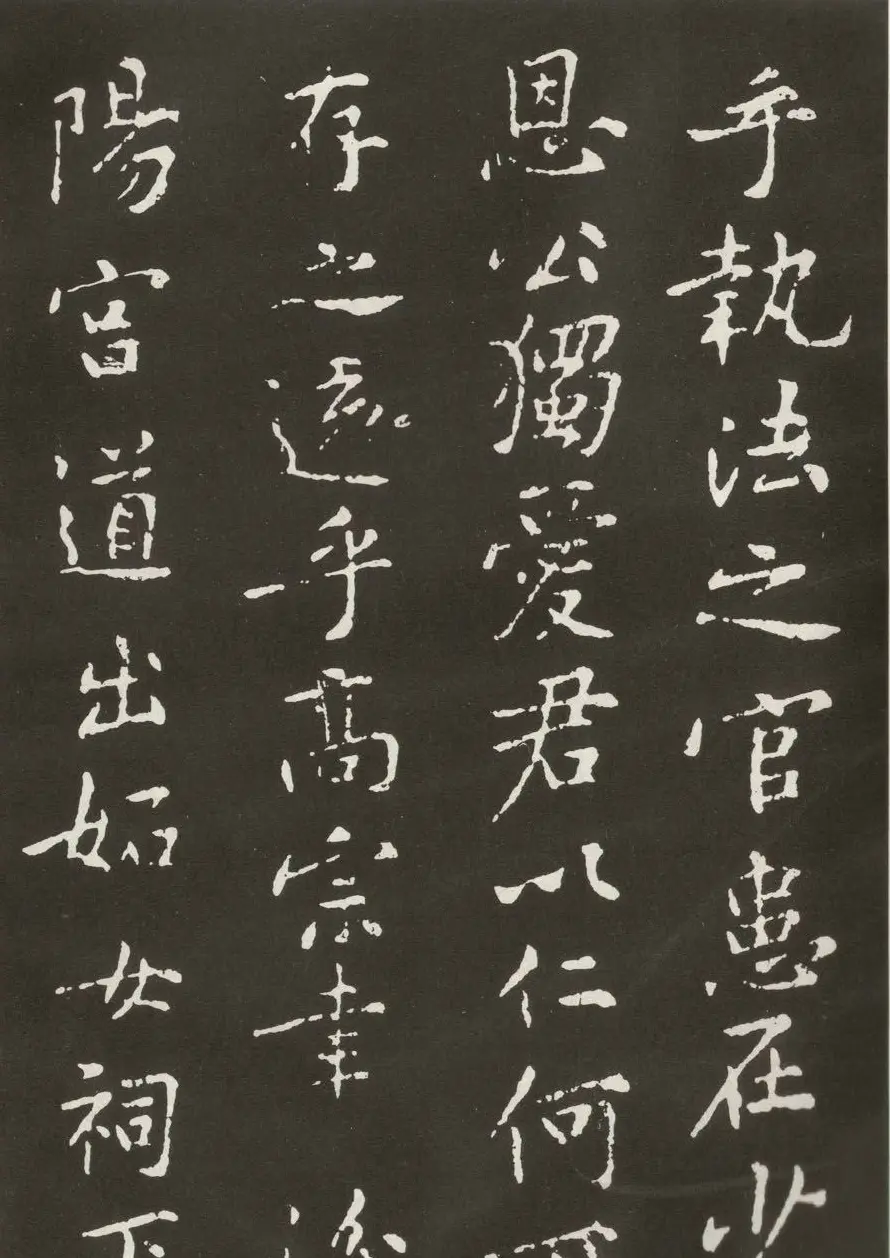 乎執法之官患在少
恩公獨愛君以仁何
存之遠乎高宗幸汾
陽宮道出妬女祠下